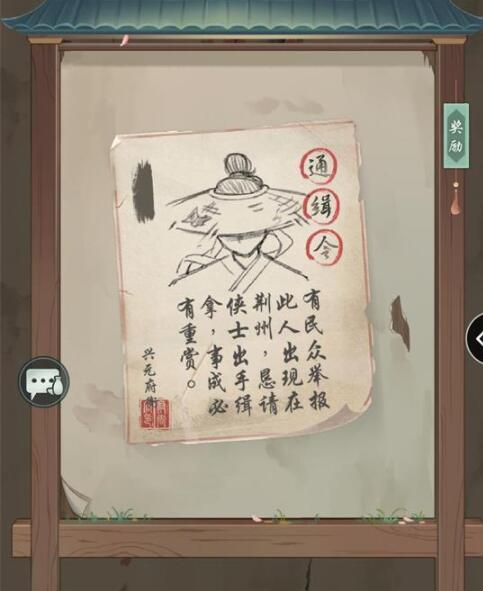 通缉令
有民众举报
此人出现在
荆州，恳请
侠士出手缉
拿，事成必
有重赏。
兴元府衙
奖励